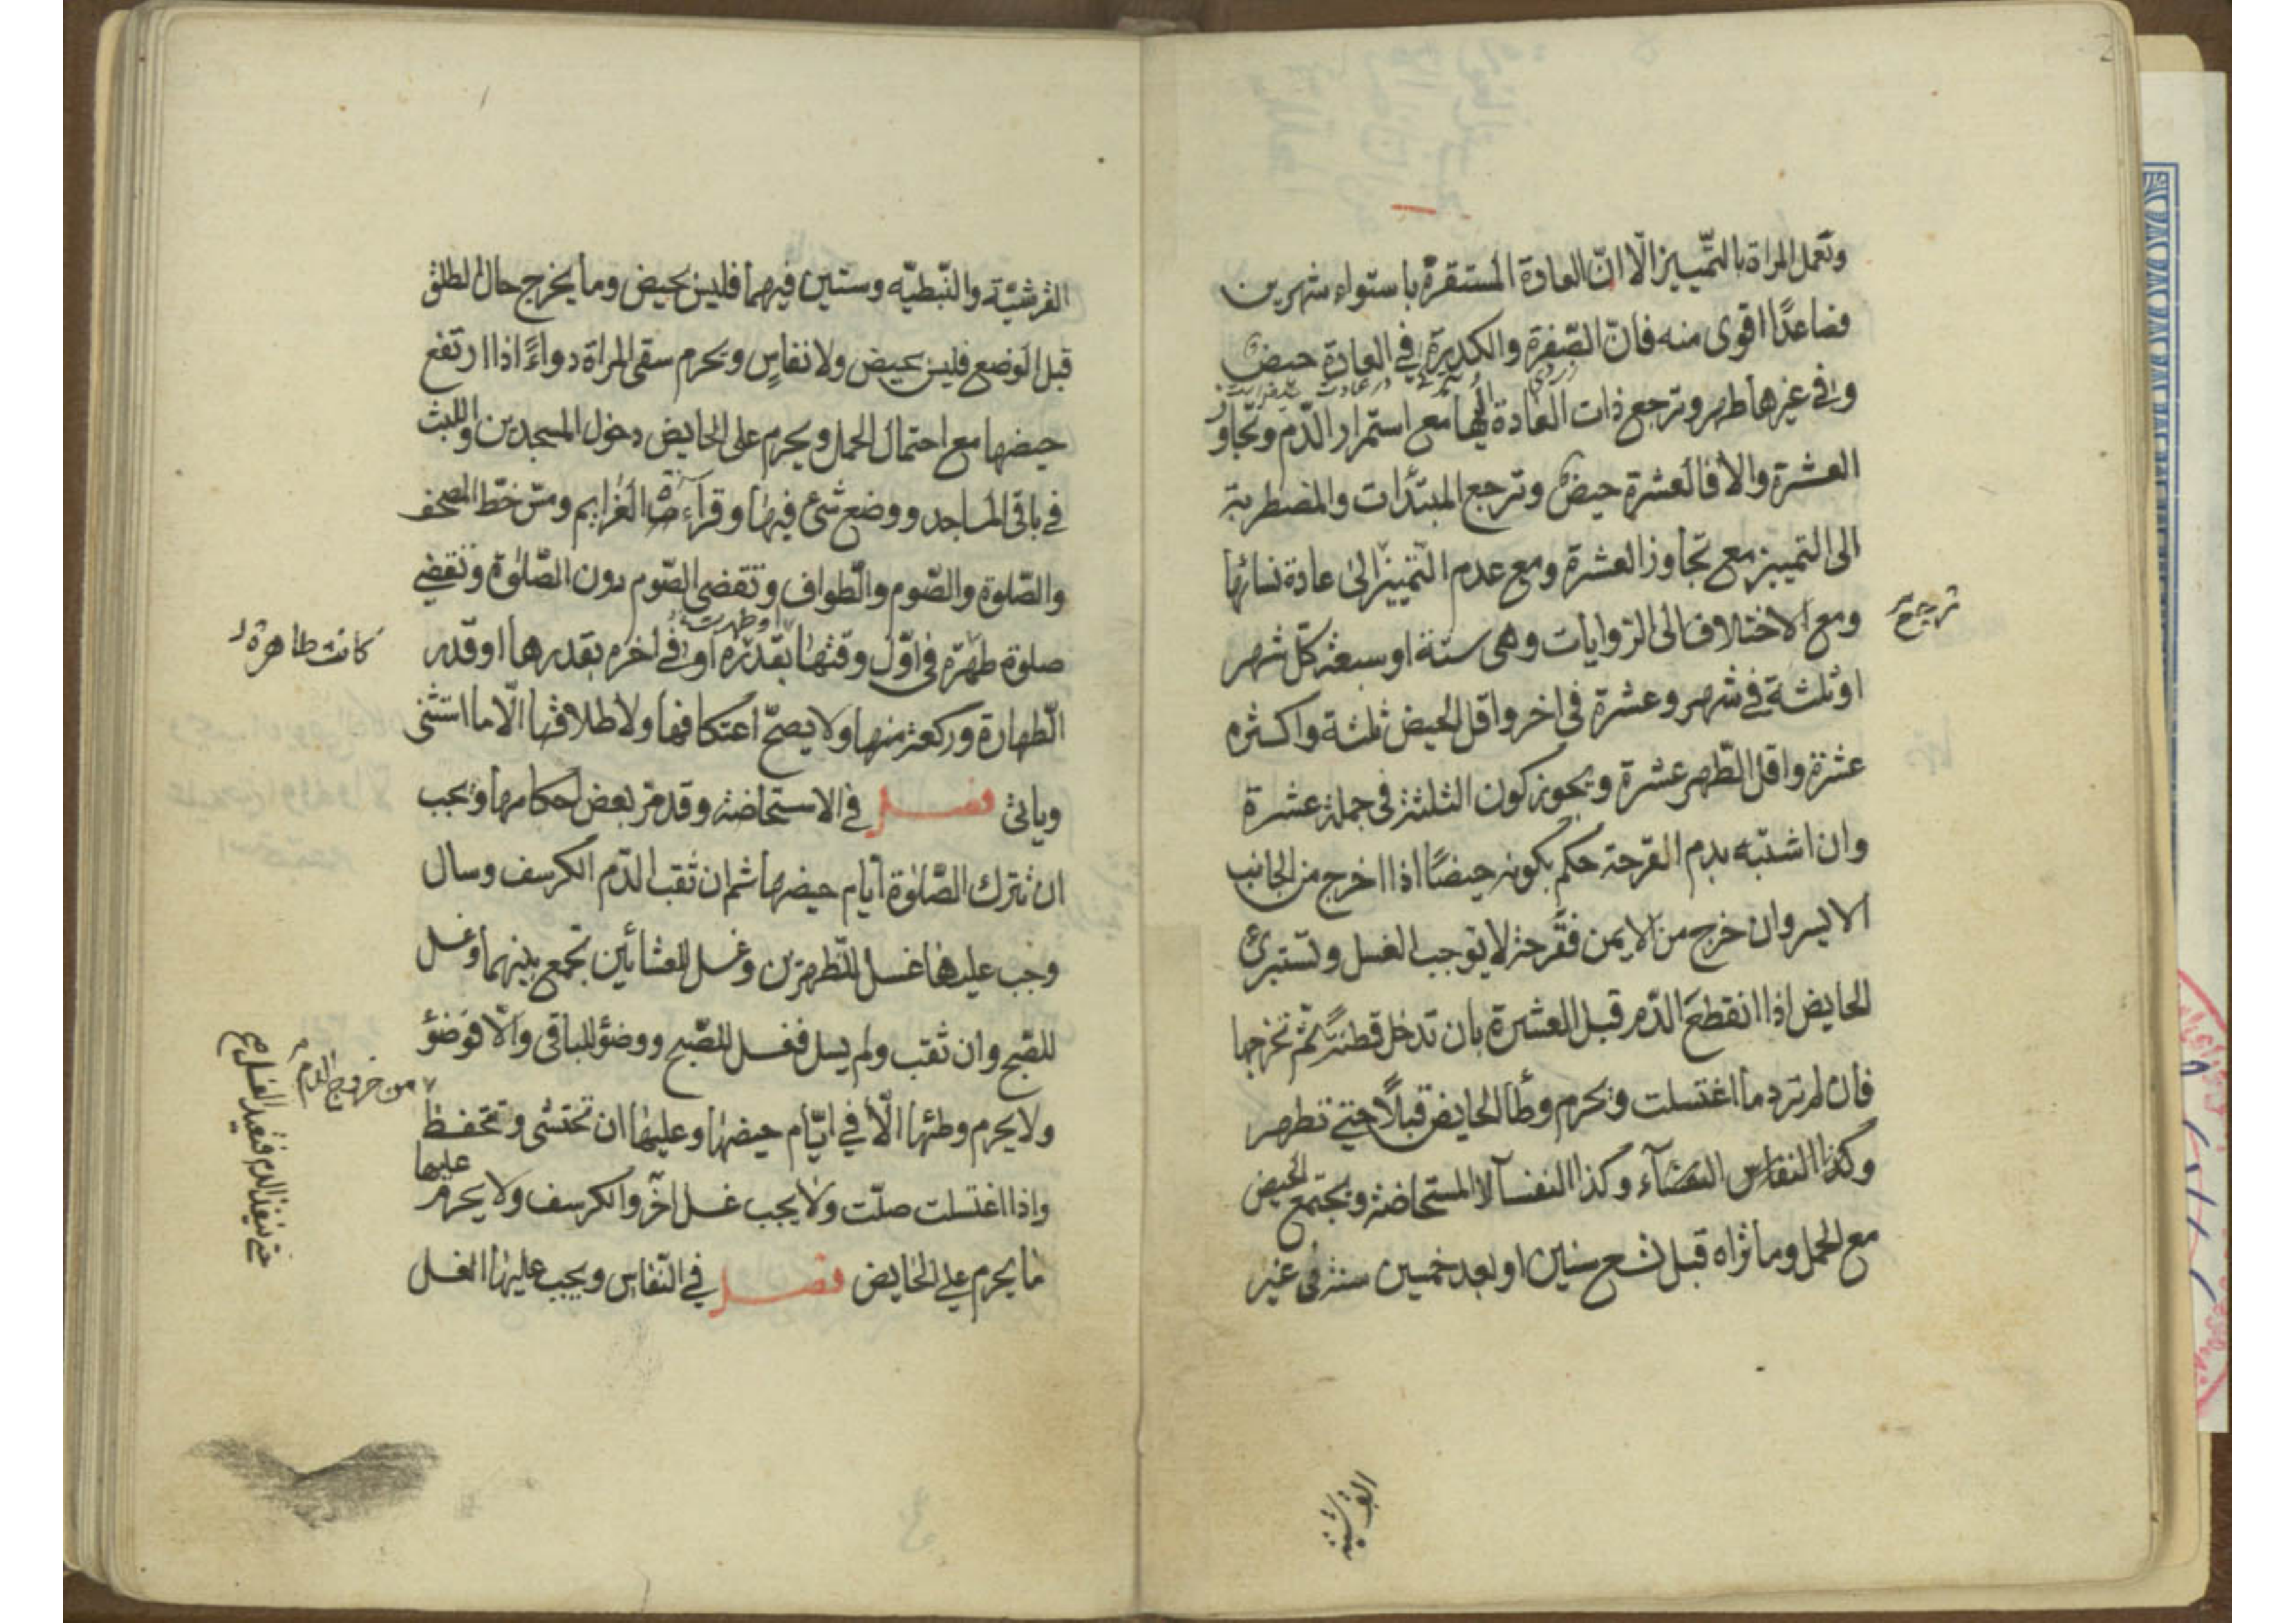 وتعمل المراة بالتّمييز الّا انّ العادة المستقرّة باستواء شهرين
فصاعدًا اقوى منه فانّ الصّفرة والكدرة في العادة حيض
وفي غيرها طهر وترجع ذات العادة اليها مع استمرار الدّم وتجاوز
العشرة والا فالعشرة حيض وترجع المبتدّات والمضطربة
الى التمييز مع تجاوز العشرة ومع عدم التّمييز الى عادة نسائها
ترجع
ومع الاختلاف الى الروايات وهى ستة او سبعة كلّ شهر
او ثلثة في شهر وعشرة في اخر واقل الحيض ثلثة واكثره
عشرة واقل الطّهر عشرة ويجوز كون الثلثة في جملة عشرة
وان اشتبه بدم القرحة حكم بكونه حيضًا اذا اخرج من الجانب
الايسر وان خرج من الايمن فقرحة لا يوجب الغسل وتستبرئ
الحايض اذا انقطع الدّم قبل العشرة بان تدخل قطنة ثم تخرجها
فان لم ترد ما اغتسلت ويحرم وطأ الحايض قبلًا حتى تطهر
وكذا النفاس وكذا النفسآ لا المستحاضة ويجتمع الحيض
مع الحمل وما تراه قبل تسع سنين او بعد خمسين سنة في غير
القرشية
القرشيّة والنّبطيّه وستين فيهما فليس بحيض وما يخرج حال الطلق
قبل الوضع فليس بحيض ولا نفاس ويحرم سقى المراة دواءً اذا ارتفع
حيضها مع احتمال الحمل ويحرم على الحايض دخول المسجدين واللبث
في باقى المساجد ووضع شئ فيها وقراءة العزايم ومسّ خطّ المصحف
والصّلوة والصّوم والطّواف وتقضى الصّوم دون الصّلوة وتقضي
او طهرت
صلوة طهرة في اوّل وقتها بقدره او في اخره بقدرها او قدر
كانت طاهرة
الطّهارة وركعة منها ولا يصحّ اعتكافها ولا طلاقها الّا ما استثنى
وياتى فصل في الاستحاضة وقد مر بعض احكامها ويجب
ان تترك الصّلوة ايّام حيضها ثم ان ثقب الدّم الكرسف وسال
وجب عليها غسل للظهرين وغسل للعشائين تجمع بينهما وغسل
للصّبح وان ثقب ولم يسل فغسل للصّبح ووضؤ للباقى والّا فوضؤ
من خروج الدم
حتى تنفذ الدم فتعيد الغسل صح
ولا يحرم وطئها الّا في ايّام حيضها وعليها ان تحتشى وتتحفظ
واذا اغتسلت صلّت ولا يجب غسل اخر والكرسف ولا يحرم عليها
ما يحرم على الحايض فصل في النّفاس ويجب عليها الغسل